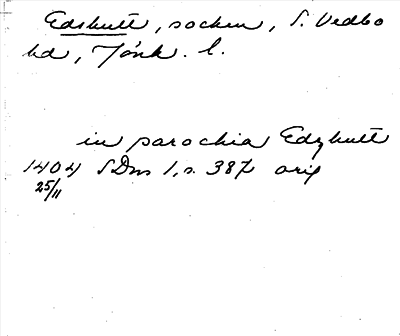 Edshult, socken, S. Vedbo
hd, Jönk. l.
in parochia Edzhult
1404 SDns 1, s. 387 orig
25/11